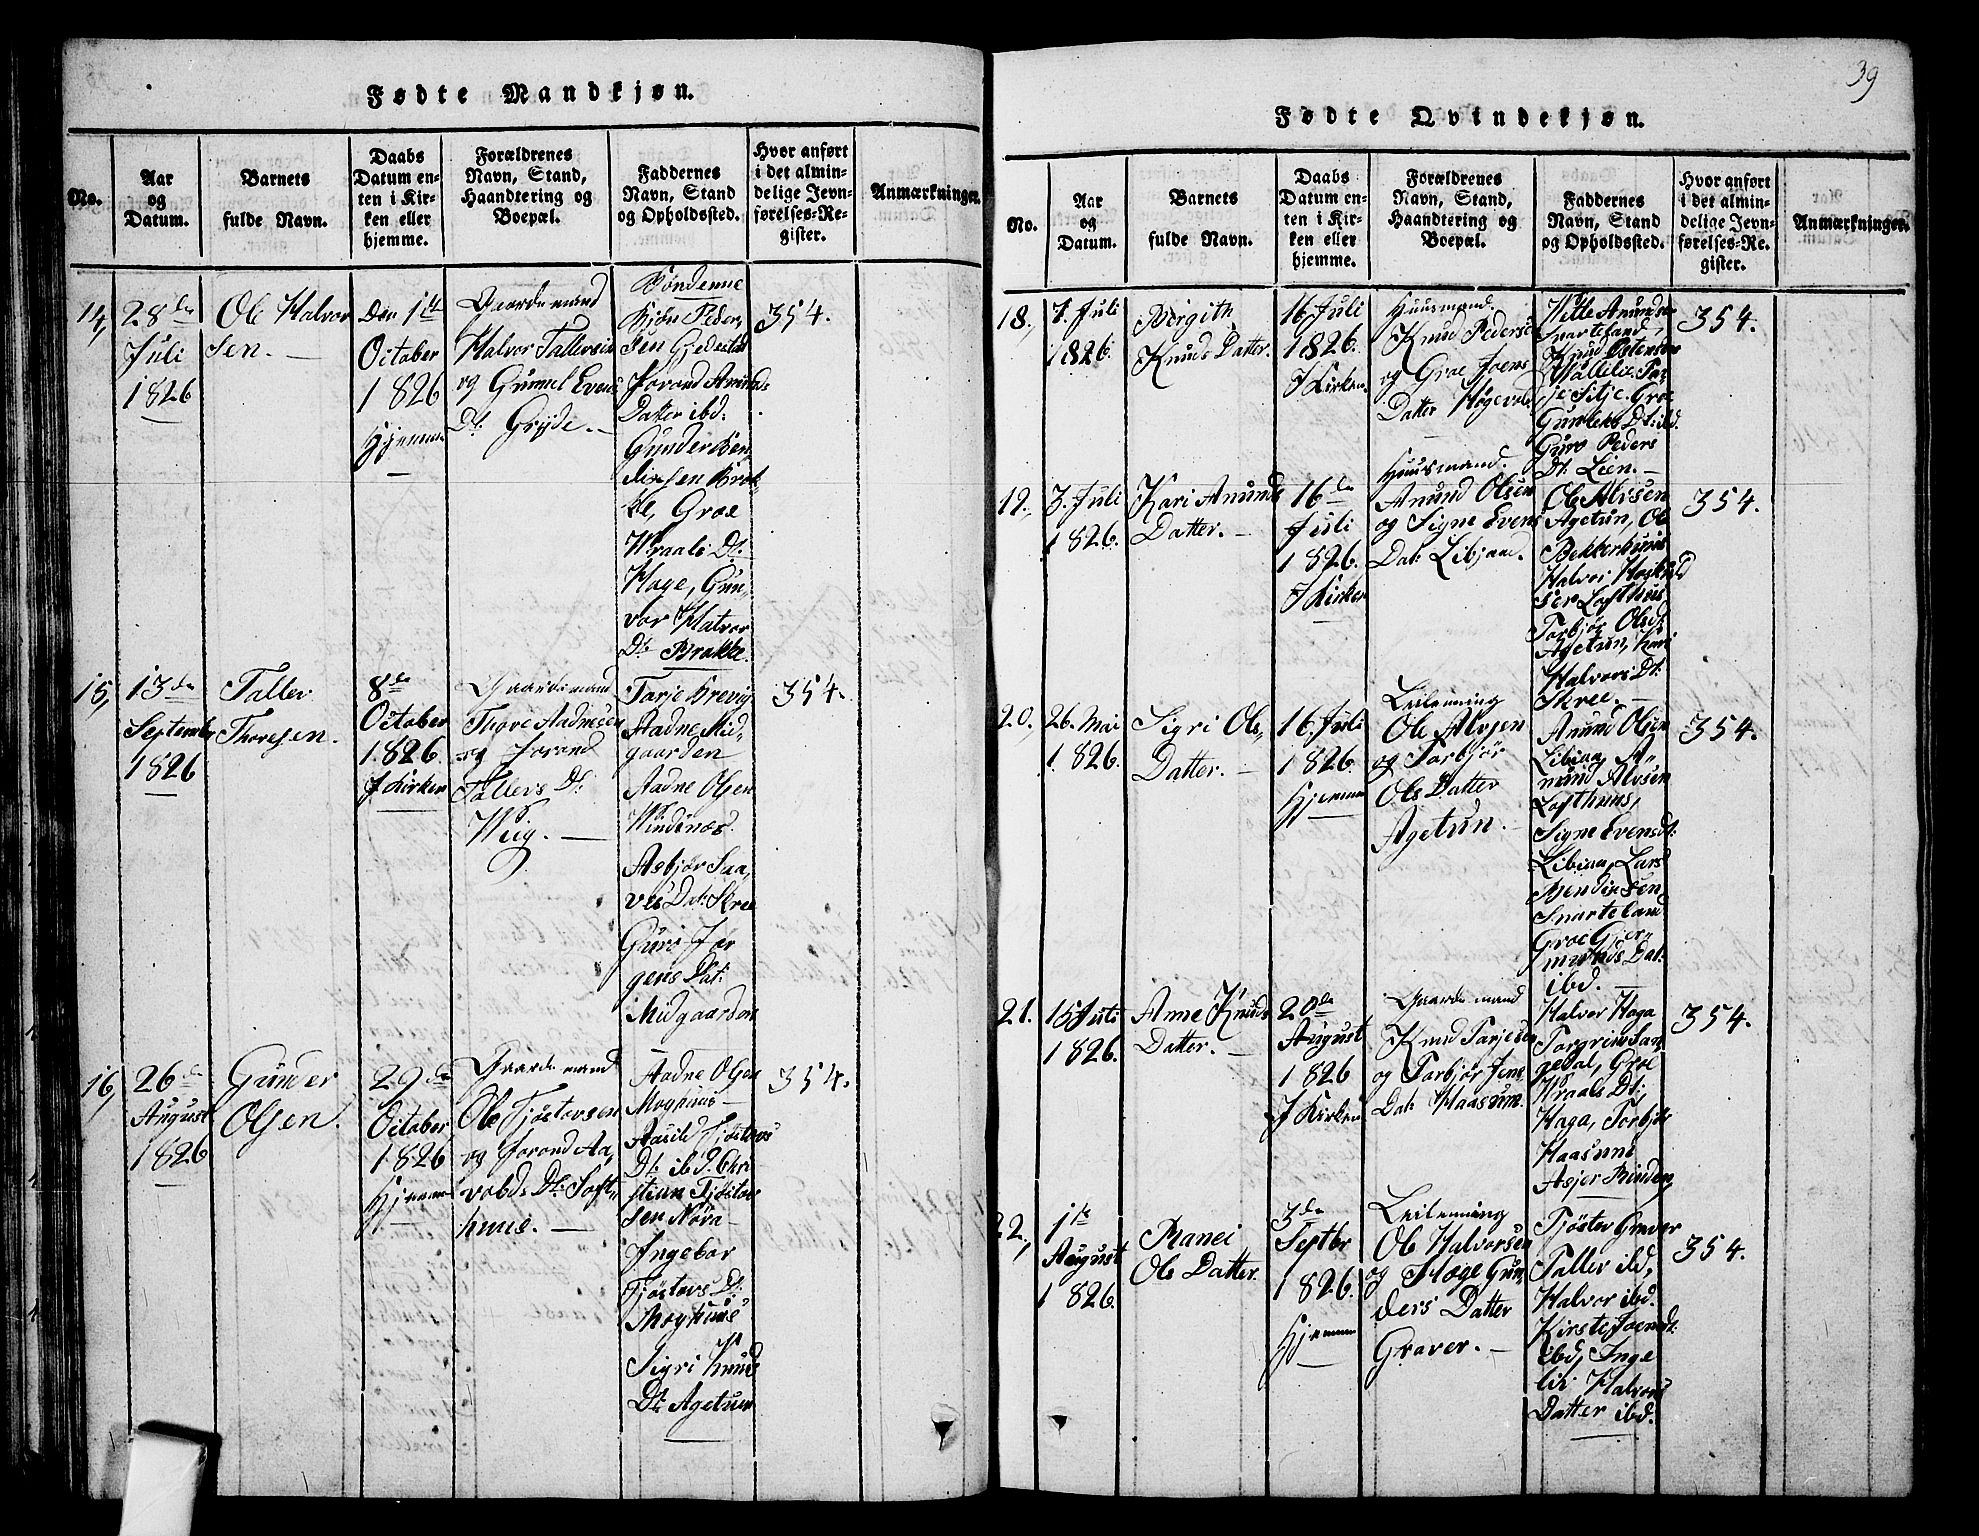 Fødte Mandkjøn.
No.
Aar
og
Datum.
Barnets
fulde Navn.
Daabs
Datum en-
ten i Kir-
ken eller
hjemme.
Forældrenes
Navn, Stand,
Haandtering og
Boepæl.
Faddernes
Navn, Stand
og Opholdssted.
Hvor anført
i det almin-
delige Jevn-
førelses-Re-
gister.
Anmærkninger.
14,
28de
Juli
1826
Ole Halvor
sen.
Den 1te
October
1826
Hjemme
Gaardemand
Halvor Tallevsen
og Gunnel Evens
Dt. Gryde.
Bønderne
Biøn Peder,
sen Gjedestad
Jorond Amunds
Datter ibd.
Gunder Ben,
dixsen Brok-
ke, Groe
Wraals Dt.
Hage, Gun,
vor Halvor
Dt. Brokke.
354.
15,
13de
September
1826
Tallev
Thoresen.
8de
October
1826
I Kirken
Gaardemand
Thore Aadnesen
og Jorond
Tallevs Dt.
Wiig.
Tarje Brevig
Aadne Mid,
gaarden
Aadne Olsen
Windenæs.
Asbjør Saa,
ves Dat. Skree
Guro Jør
gens Dat.
Midgaarden
354.
16,
26de
August
1826
Gunder
Olsen.
29de
October
1826
Hjemme
Gaardemand
Ole Tjøstovsen
og Jorond Aa,
volds Dt. Loft,
huus.
Aadne Olsen
Moghuus
Aasild Tjøstovs
Dt. ibd. Chri
stian Tjøstov
sen
Ingebor
Tjøstovs Dt.
Moghuus
Sigri Knuds
Dt. Agetun
354.
39
Fødte Qvindekjøn.
No.
Aar
og
Datum.
Barnets
fulde Navn.
Daabs
Datum en-
ten i Kir-
ken eller
hjemme.
Forældrenes
Navn, Stand,
Haandtering og
Boepæl.
Faddernes
Navn, Stand
og Opholdssted.
Hvor anført
i det almin-
delige Jevn-
førelses-Re-
gister.
Anmærkninger.
18.
1. Juli
1826.
Birgith
Knuds Datter.
16 Juli
1826.
I Kirken
Huusmand.
Knud Pedersen
og Groe Joens
Datter
Amunds
Snarteland,
Knud Ostensen
Tar,
je Sitje. Groe
Gunleks Dt. ibd.
Guro Peders
Dt. Lien.
354.
19.,
3. Juli
1826.
Kari Anunds
Datter.
16de
Juli
1826.
I Kirken
Huusmand.
Anund Olsen
og Signe Evens
Dat. Libjaae.
Ole Alvsen
Agetun, Ole
Bekkerhuus
Halvor
sen Lofthuus
Torbjør Olsd.
Agetun, Kari
Halvors Dt.
Skree.
354.
20.,
26. Mai
1826.
Sigri Ols,
Datter.
16. Juli
1826.
Hjemme
Leilenning
Ole Alvsen
og Torbjør
Ols Datter
Agetun.
Anund Olsen
Libiaa, A-
mund Alvsen
Lofthuus,
Signe Evensdt.
Libiaa, Lars
Bendixsen
Snarteland
Groe Gjer,
munds Dat.
ibd.
354.
21.
15 Juli
1826.
Anne Knuds
Datter.
20de
August
1826
I Kirken
Gaardemand
Knud Tarjesen
og Torbjør Jens
Dat. Haasum.
Halvor Haga
Torgrim Lan,
gedal, Groe
Wraals Dt.
Haga, Torbjør
Haasum
Asjer Rinden,
354.
22.,
1te
August
1826.
Ranei
Ols Datter.
3de
Septbr
1826.
Hjemme
Leilenning
Ole Halvorsen
og Hæge Gun,
ders Datter
Graver.
Tjøstov Graver
Tallev ibd,
Halvor ibd.
Kirste Joensdt.
ibd, Inge
lir Halvors
Datter ibd.
354.